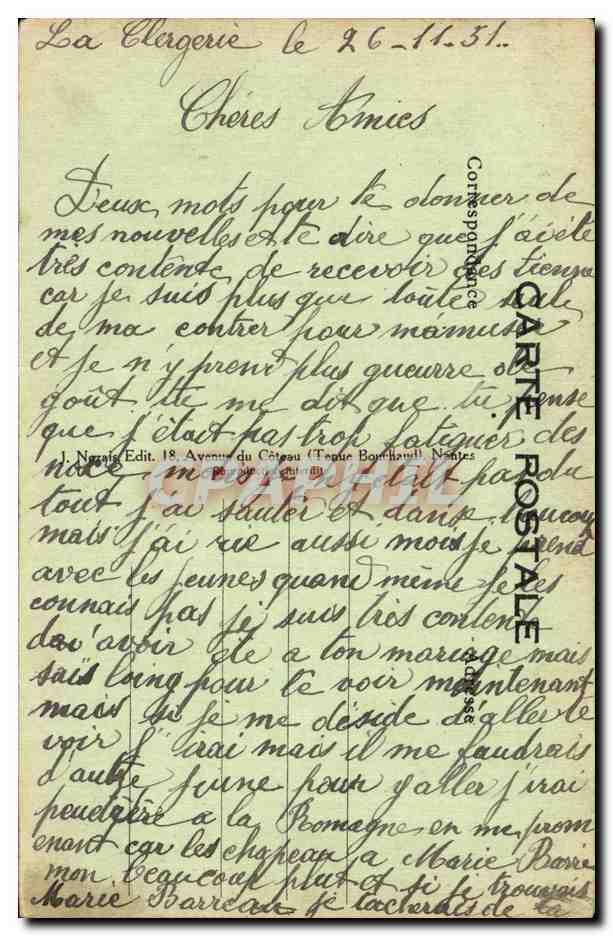 La Clergerie le 26-11-31..
Chéres Amies
Deux mots pour te donner de
mes nouvelles et te dire que j'ai été
très contente de recevoir des tienne
car je suis plus que toute seule
de ma contrer pour m'amuse
et je n'y prend plus gueurre de
goût tu me dit que tu pense
que j'était pas trop fatiguer des
J. Nozais, Edit. 18, Avenue du Côteau (Tenue Bouchaud), Nantes
Reproduction interdite
noce mois je n'était pas du
tout j'ai sauter et danse beaucoup
mais j'ai rie aussi mois je prend
avec les jeunes quand même je les
connais pas je suis très contente
d'avoir été a ton mariage mais
sais loing pour te voir maintenant
mais si je me déside d'aller te
voir j'irai mais il me faudrais
d'autre jeune pour y aller j'irai
peudètre a la Romagne en me prom
enant car les chapeau a Marie Barre
mon beaucoup plut et si je trouvais
Marie Barreau je tacherais de la
CARTE POSTALE
Correspondance
Adresse
CPAPHIL